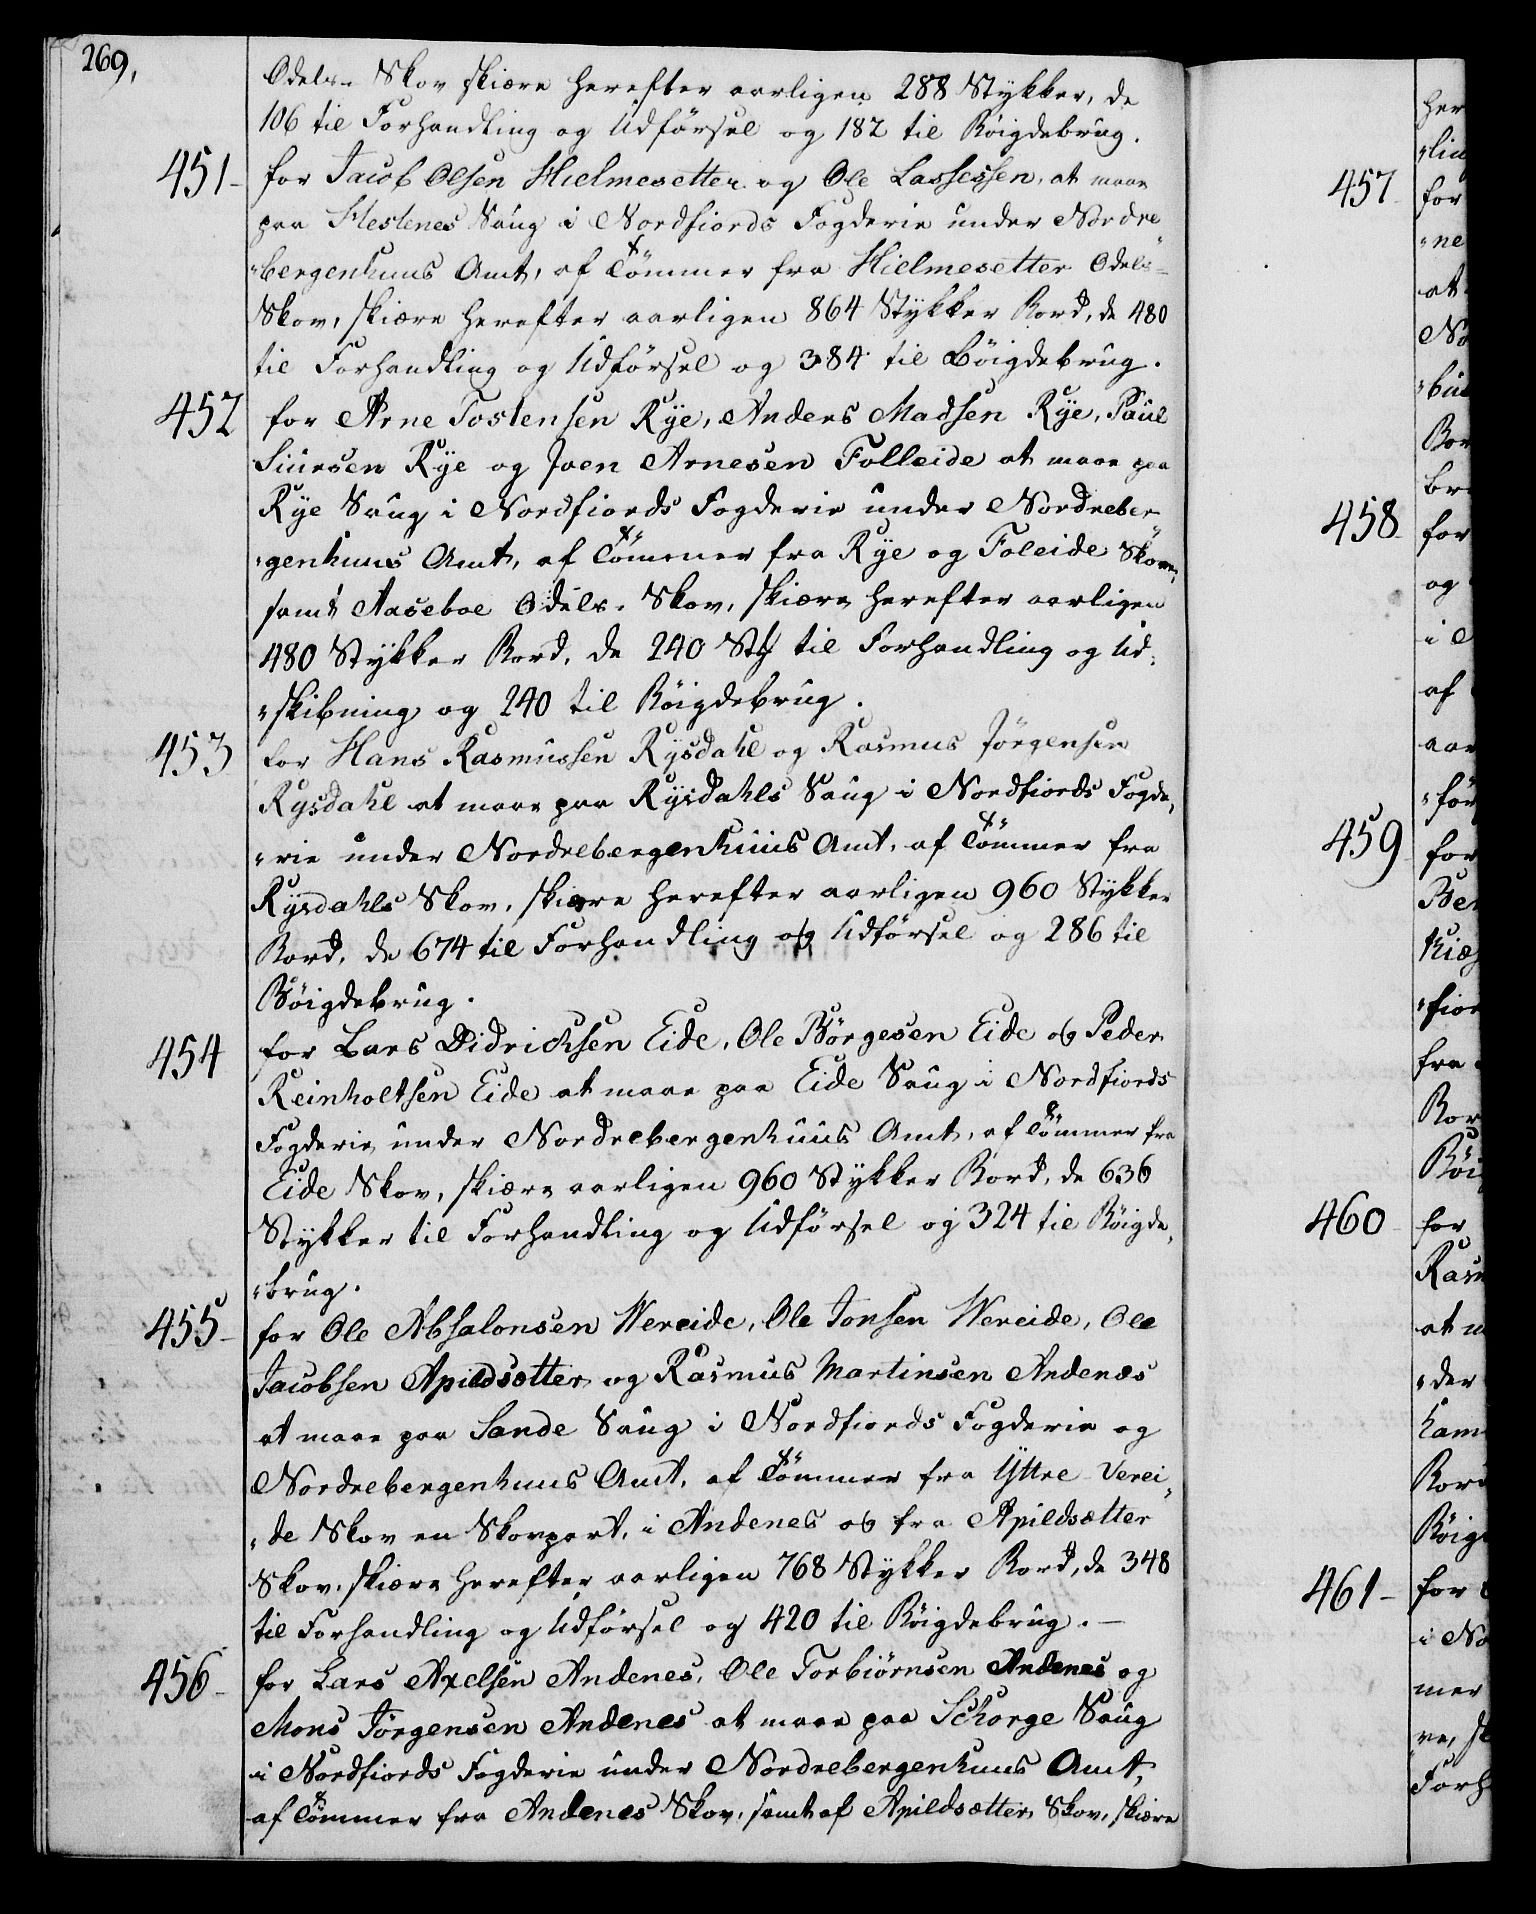 269,
Odels- Skov skiære herefter aarligen 288 Stykker, de
106 til Forhandling og Udførsel og 182 til Böigdebrug.
451- for Jacob Olsen Hielmesetter og Ole Lassessen, at maae
paa Hestenes Saug i Nordfiords Fogderie under Nordre
"bergenhuus Amt, af Tömmer fra Hielmesetter Odels-
Skov, skiære herefter aarligen 864 Stykker Bord, de 480
til Forhandling og Udförsel og 384 til Böigdebrug.
452 for Arne Tostensen Rye, Anders Madsen Rye, Paul
Siursen Rye og Joen Arnesen Folleide at maae paa
Rye Saug i Nordfiords Fogderie under Nordreber-
"genhuus Amt, af Tömmer fra Rye og Foleide Skove,
samt Aaseboe Odels- Skov, skiære herefter aarligen
480 Stykker Bord, de 240 Stk til Forhandling og Ud-
"skibning og 240 til Böigdebrug.
453 for Hans Rasmussen Rysdahl og Rasmus Jörgensen
Rysdahl at maae paa Rysdahls Saug i Nordfiords Fogde,
"rie under Nordrebergenhuus Amt, af Tömmer fra
Rysdahls Skov, skiære herefter aarligen 960 Stykker
Bord, de 674 til Forhandling og Udförsel og 286 til
Böigdebrug.
454 for Lars Didricksen Eide, Ole Börgesen Eide og Peder
Reinholtsen Eide at maae paa Eide Saug i Nordfiords
Fogderie under Nordrebergenhuus Amt, af Tömmer fra
Eide Skov, skiære aarligen 960 Stykker Bord, de 636
Stykker til Forhandling og Udförsel og 324 til Böigde,
"brug.
455- for Ole Absalonsen Wereide, Ole Jonsen Wereide, Ole
Jacobsen Apildsætter og Rasmus Martinsen Andenæs
at maae paa Sande Saug i Nordfiords Fogderie og
Nordrebergenhuus Amt, af Tömmer fra Yttre Verei,
"de Skov en Skovpart, i Andenes og fra Apildsætter
Skov, skiære herefter aarligen 768 Stykker Bord, de 348
til Forhandling og Udförsel og 420 til Böigdebrug.-
456- for Lars Axelsen Andenes, Ole Torbiörnsen Andenes og
Mons Jörgensen Andenes at maae paa Schorge Saug
i Nordfiords Fogderie under Nordrebergenhuus Amt,
af Tömmer fra Andenes Skov, samt af Apildsætter Skov, skiære
her
"lin
457 for
"ne
at
No
"bu
Bor
br
458 for
og
i
af
aar
"för
459 for
Ber
Kiæ
"fior
fra
Bor
Böi
460 for
Rasm
at m
"der
Kam
Bord
Böig
461- for
i No
mer
"ve, sk
Forh